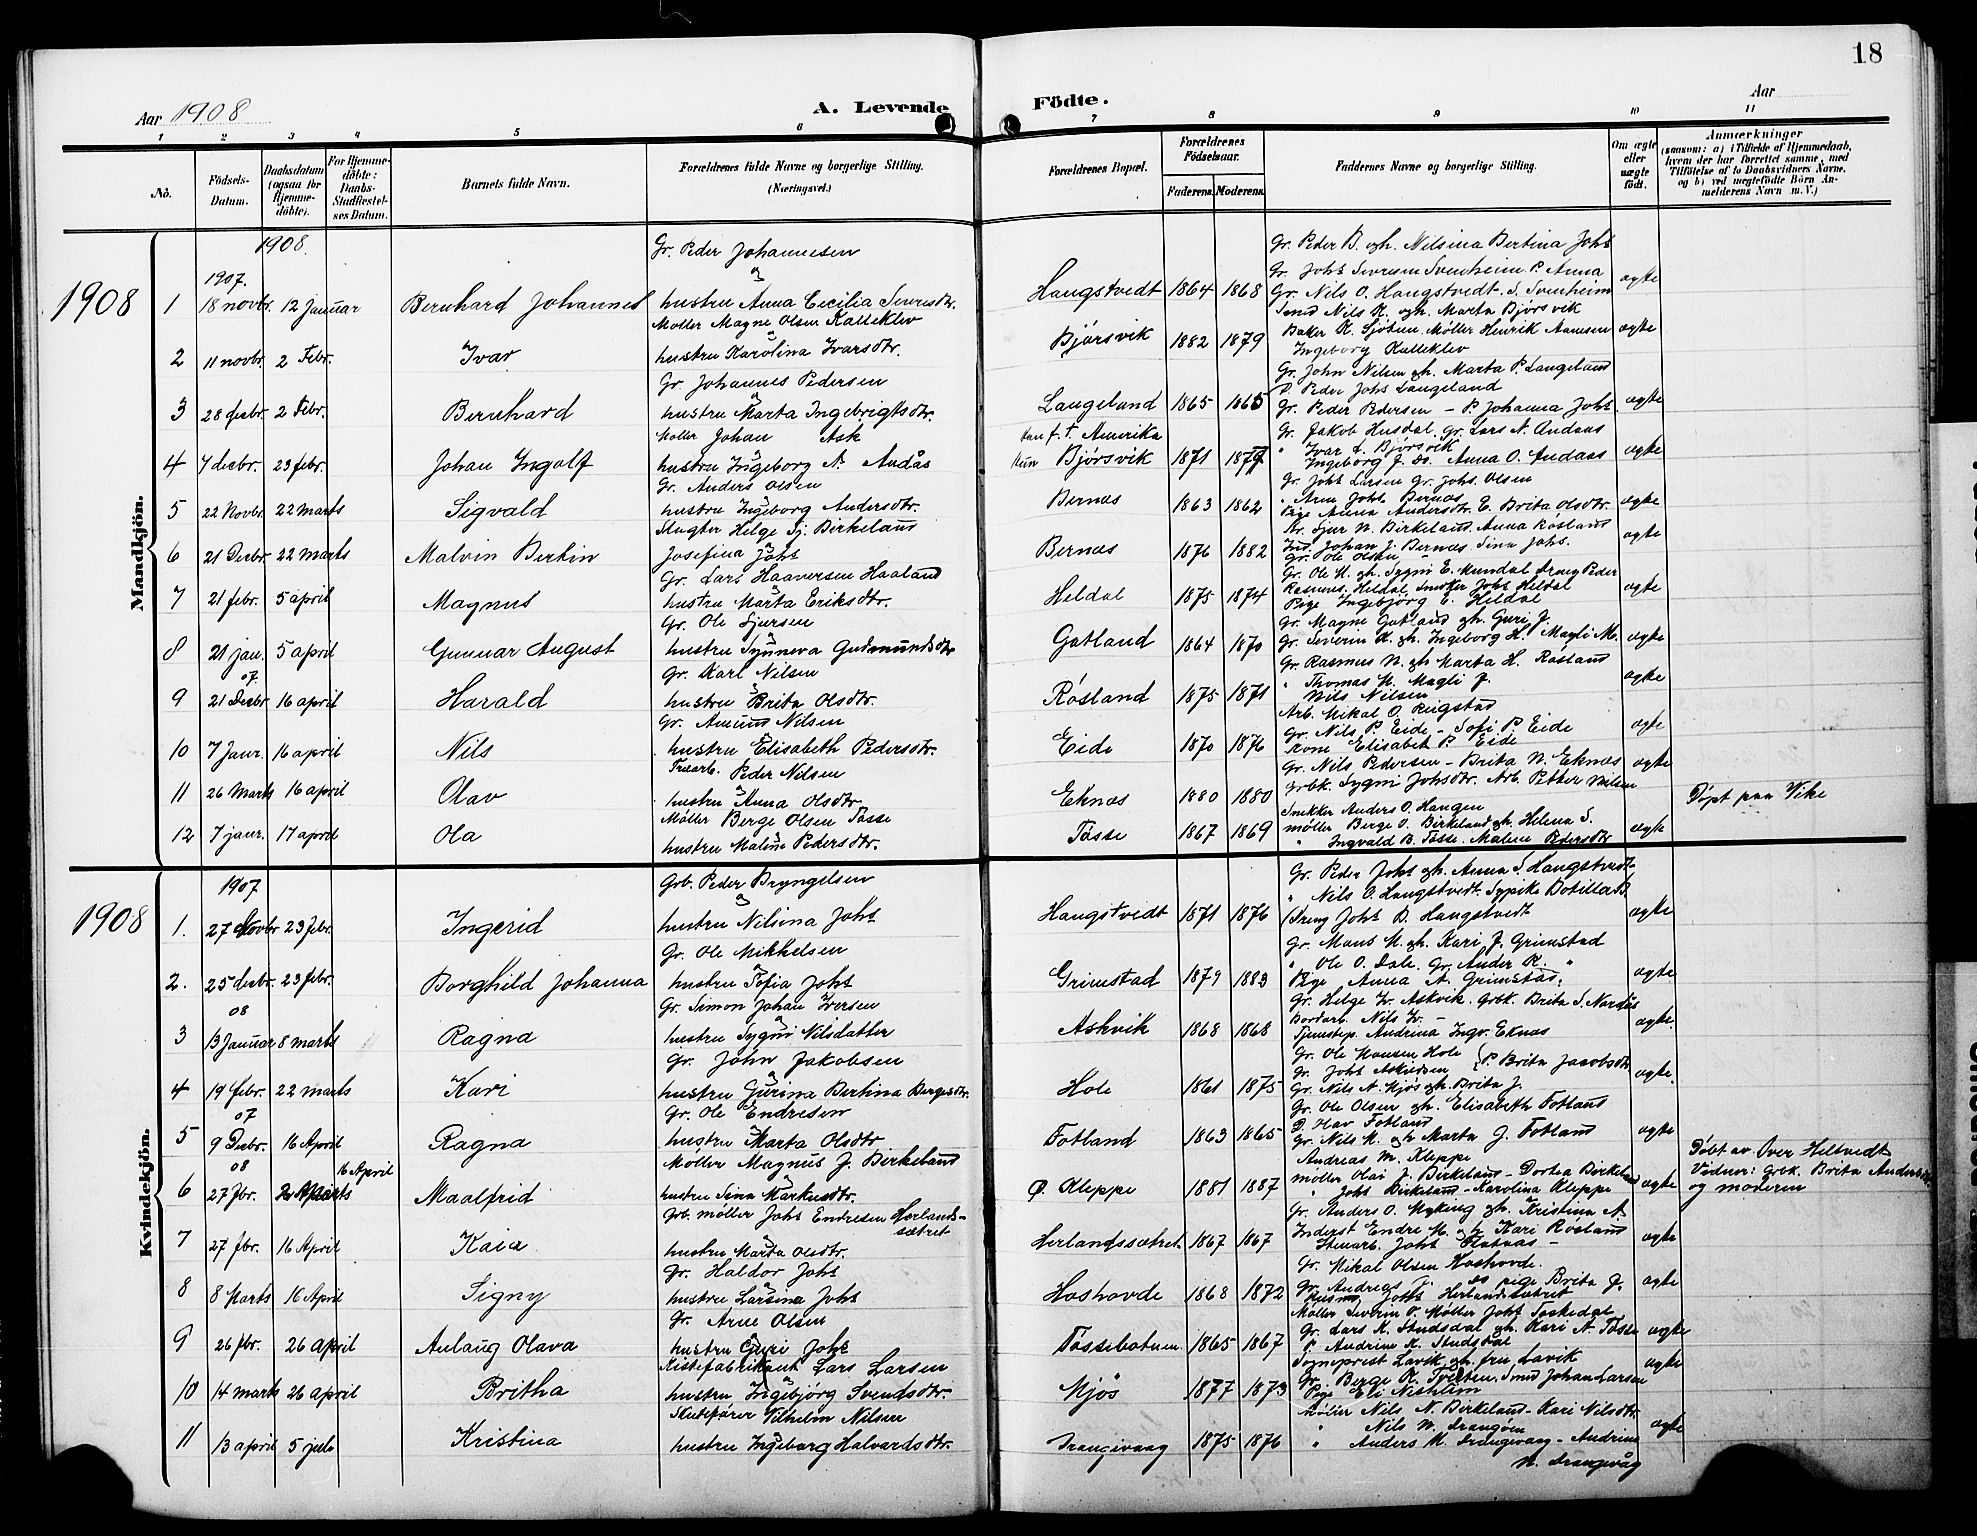 18
Aar 1908
A. Levende
Födte.
Aar
1 2 3 4 5 6 7 8 9 10 11
No.
Födsels-Datum.
Daabsdatum (ogsaa for Hjemmedöbte).
For Hjemmedöbte: Daabs-Stadfæstelses Datum.
Barnets fulde Navn.
Forældrenes fulde Navne og borgerlige Stilling. (Næringsvei.)
Forældrenes Bopæl.
Forældrenes Födselsaar.
Faderens. Moderens.
Faddernes Navne og borgerlige Stilling.
Om ægte eller uægte födt.
Anmærkninger
(saasom: a) i Tilfælde af Hjemmedaab, hvem der har forrettet samme, med Tilföielse af to Daabsvidners Navne, og b) ved uægtefödte Börn Anmelderens Navn m. V.)
Mandkjön.
1908
1908.
1907.
Gr. Peder Johannesen
Gr. Peder B. gh. Nilsina Bertina Johs
Gr. Johs Severin Svenheim P. Anna
1 18 novbr. 12 Januar Bernhard Johannes hustru Anna Cecilia Seversdtr. Haugstvedt 1864 1868 Gr. Nils O. Haugstvedt. S. Svenheim ægte
Møller Magne Olsen Kalleklev
Smed Nils K. gh. Marta Bjørsvik
2 11 novbr. 2 Febr. Ivar hustru Karolina Ivarsdtr. Bjørsvik 1882 1879 Baker K. Sjøtun. Møller Henrik Arnesen ægte
Ingeborg Kalleklev
Gr. Johannes Pedersen
Gr. John Nilsen gh. Marta P. Langeland
P. Peder Johs Langeland
3 28 desbr. 2 Febr. Bernhard hustru Marta Ingebrigtsdtr. Langeland 1865 1865 Gr. Peder Pedersen - P. Johanna Johs. ægte
Møller Johan Ask
Han f. t. Amerika
Gr. Jakob Husdal. gr. Lars N. Andaas
" Ivar L. Bjørsvik
4 7 desbr. 23 febr. Johan Ingolf hustru Ingeborg N. Andås Hun Bjørsvik 1871 1877 Ingeborg J. Do. Anna O. Andaas ægte
Gr. Anders Olsen
Gr. Johs Larsen Gr. Johs. Olsen
" Arne Johs. Bernæs
5 22 Novbr. 22 marts Sigvald hustru Ingeborg Andersdtr. Bernæs 1863 1862 Pige Anna Andersdtr. E. Brita Olsdtr. ægte
Slagter Helge Sj. Birkeland
Gr. Sjur N. Birkeland. Anna Røsland
6 21 Desbr. 22 marts Malvin Bertin Josefina Johs Bernæs 1876 1882 Ind. Johan J. Bernæs. Sina Johs. ægte
Gr. Ole Olsen
Gr. Lars Haaversen Haaland
Gr. Ole M. gh. Sygni E. Mundal Dreng Peder
7 21 febr. 5 april Magnus hustru Marta Eriksdtr. Heldal 1875 1874 Rasmus. Heldal, Snedker Johs Heldal ægte
Pige Ingebjørg E. Heldal
Gr. Ole Sjursen
Gr. Magne Gotland gh. Guri J.
8 21 jan. 5 april Gunnar August hustru Synneva Gudmundsdtr Gotland 1864 1870 Gr. Severin K. gh. Ingeborg H. Magli M. ægte
07.
Gr. Karl Nilsen
Gr. Rasmus N. gh Marta H. Røsland
" Thomas M. Magli J.
9 21 Desbr. 16 april Harald hustru Brita Olsdtr. Røsland 1875 1871 Nils Nilsen ægte
Gr. Amund Nilsen
Arb. Mikal O. Rugstad
Gr. Nils P. Eide - Sofi P. Eide
10 7 Janr. 16 april Nils hustru Elisabeth Pedersdtr. Eide 1870 1876 Kone Elisabet P. Eide ægte
Peder Nilsen
Gr. Nils Pedersen - Brita N. Eknæs
11 26 Marts 16 april Olav hustru Anna Olsdtr. Eknæs 1880 1880 Grbk. Sygni Johsdtr. Arb. Petter Nilsen ægte Døpt paa Vike
Møller Berge Olsen Tøsse
Snekker Anders O. Haugen
12 7 janr. 17 april Ola hustru Malene Pedersdtr. Tøsse 1867 1869 møller Berge O. Birkeland gh. Helena S. ægte
" Ingvald B. Tøsse. Malene Pedersdtr
Kvindekjön.
1908
1907
Grb. Peder Bryngelsen
Gr. Peder Johs gh. Anna S. Haugstvedt
" Nils O. Haugstvedt.
1. 27 Novbr 23 febr. Ingerid hustru Nilsina Johs Haugstvedt 1871 1876 Dreng Johs B. Haugstvedt ægte
Gr. Ole Mikkelsen
Gr. Mons M. gh. Kari J. Grimstad
" Ole O. Dale. Gr. Ander K. "
2. 25 desbr. 23 febr. Borghild Johanna hustru Sofia Johs Grimstad 1879 1883 Pige Anna A. Grimstad. ægte
08
Gr. Simon Johan Iversen
Gr. Helge Iv. Askvik. Grbk. Brita S. Nordås
Bordarb. Nils Iv. -
3 13 Januar 8 marts Ragna hustru Sygni Nilsdatter Askvik 1868 1868 Tjenestep. Andrina Ingv. Eknæs ægte.
Gr. John Jakobsen
Gr. Ole Monsen Hole
Gr. Johs Askildsen P. Brita Jacobsdtr
4 19 febr. 22 marts Kari hustru Gurina Bertina Bergesdtr. Hole 1861 1875 Gr. Nils A. Mjøs gh. Brita J. ægte.
07
Gr. Ole Endresen
Gr. Ole Olsen gh. Elisabeth Fotland
D. Olav Fotland
5 9 Desbr. 16 April Ragna hustru Marta Olsdtr Fotland 1863 1865 Gr. Nils M. gh Marta J. Fotland ægte
08
Møller Magnus J. Birkeland
Andreas M. Kleppe
16 April
møller Olai J. Birkeland - Dortea Birkeland
6 27 fbr. Maalfrid hustru Sina Markusdtr. Ø. Kleppe 1881 1887 " Johs Birkeland - Karolina Kleppe ægte
Døbt av Iver Helsvedt
Vidner: Grbk. Brita Andersdtr
og moderen
Grb. møller Johs Endresen Herlandssætret
Gr. Anders O. Myking gh. Kristina A
7 27 fbr. 16 April Kaia hustru Marta Olsdtr. Herlandssætret. 1867 1867 Inderst Endre M. gh Kari Røsland ægte
Gr. Haldor Johs
Gr. Mikal Olsen Hoshovde.
8 8 Marts 16 April Signy hustru Larsine Johs Hoshovde 1868 1872 Gr. Andreas ægte
pige Brita J.
Johs Herlandssætret
Gr. Arne Olsen
Møller Severin O. Møller Johs Toskedal
9 26 fbr. 26 april Aulaug Olava hustru Guri Johs Tøssebotnen 1865 1867 Gr. Lars K. Studsdal gh. Kari A. Tøsse ægte
P. Andrine K. Studsdal
Kistefabrikant Lars Larsen
Sogneprest Lavik gh. fru Lavik
10 14 marts 26 april Britha hustru Ingebjørg Svendsdtr. Mjøs 1877 1873 Gr. Berge K. Tveiten. Smed Johan Larsen ægte
Pige Eli Nesheim
Skibsfører Vilhelm Nilsen
Møller Nils N. Birkeland - Kari Nilsdtr.
" Nils N. Drangøen
11 13 april 5 juli Kristina hustru Ingeborg Halvardsdtr. Drangivaag 1875 1876 " Anders M. Drangevaag - Andrine ægte
N. Drangevåg